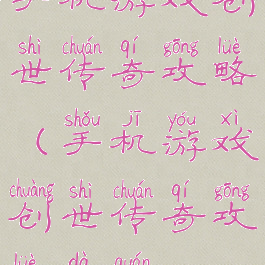 手机游戏创
shì chuán qí gōng lüè
世传奇攻略
shǒu jī yóu xì
（手机游戏
chuàng shì chuán qí gōng
创世传奇攻
lüè dà quán